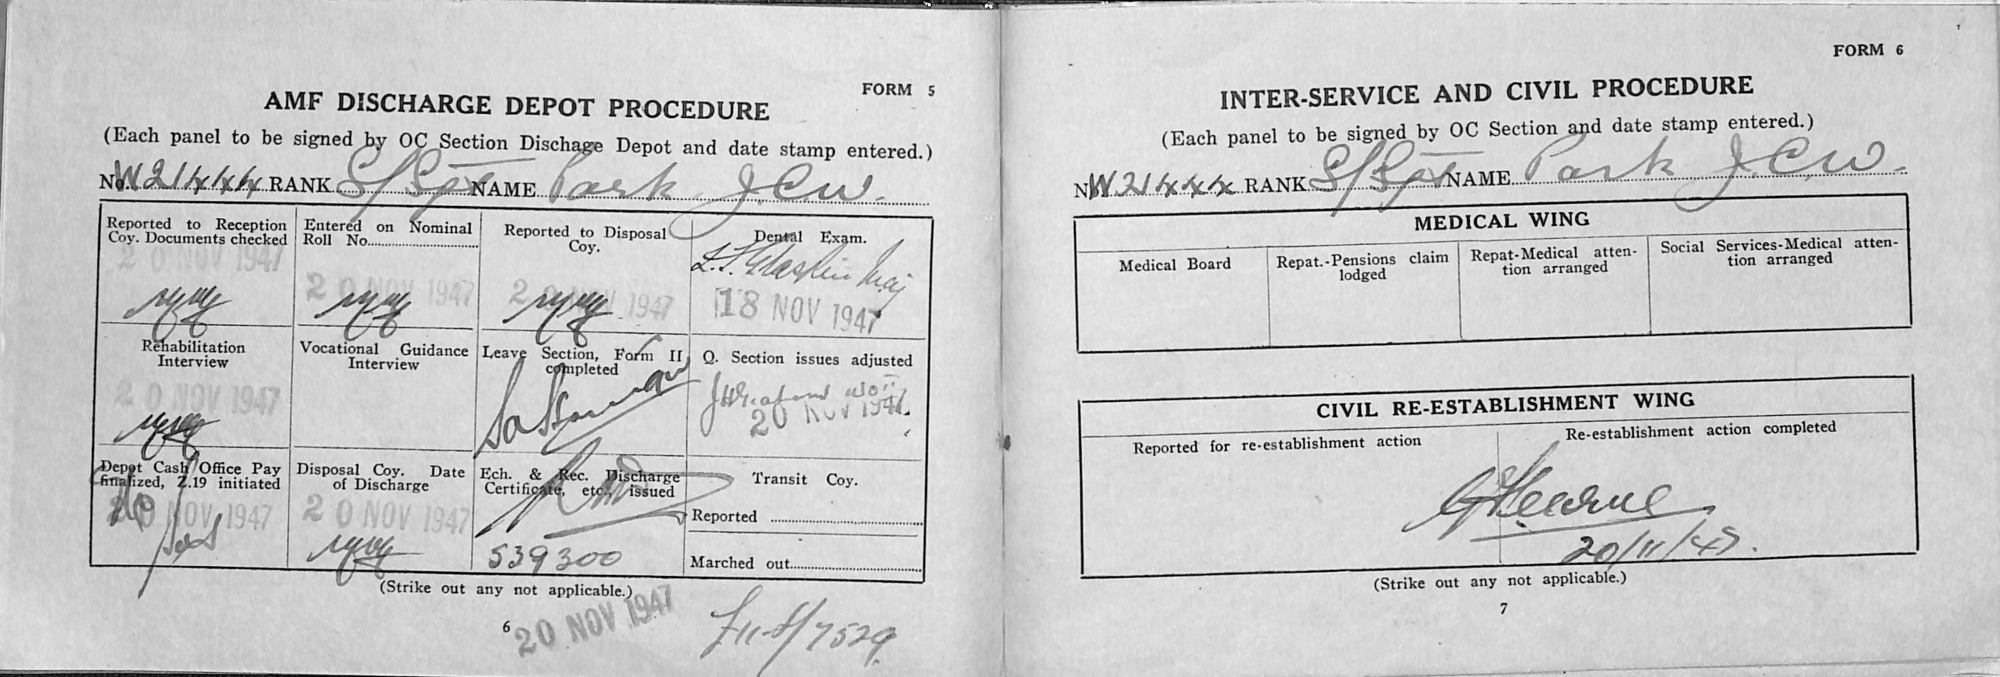 FORM 5
AMF DISCHARGE DEPOT PROCEDURE
(Each panel to be signed by OC Section Dischage Depot and date stamp entered.)
No. W21444 RANK S/Sgt NAME Park J.C.W.
Reported to Reception
Coy. Documents checked
20 NOV 1947
Entered on Nominal
Roll No.
20 NOV 1947
Reported to Disposal
Coy.
20 NOV 1947
Dental Exam.
Maj
18 NOV 1947
Rehabilitation
Interview
20 NOV 1947
Vocational Guidance
Interview
Leave Section, Form II
completed
Q. Section issues adjusted
20 NOV 1947
Depot Cash Office Pay
finalized, Z.19 initiated
20 NOV 1947
Disposal Coy. Date
of Discharge
20 NOV 1947
Ech. & Rec. Discharge
Certificate, etc., issued
539300
Transit Coy.
Reported
Marched out
(Strike out any not applicable.)
6
20 NOV 1947
FORM 6
INTER-SERVICE AND CIVIL PROCEDURE
(Each panel to be signed by OC Section and date stamp entered.)
No. W21444 RANK S/Sgt NAME Park J.C.W.
MEDICAL WING
Medical Board
Repat.-Pensions claim
lodged
Repat-Medical atten-
tion arranged
Social Services-Medical atten-
tion arranged
CIVIL RE-ESTABLISHMENT WING
Reported for re-establishment action
Re-establishment action completed
Hearne
20/11/47.
(Strike out any not applicable.)
7